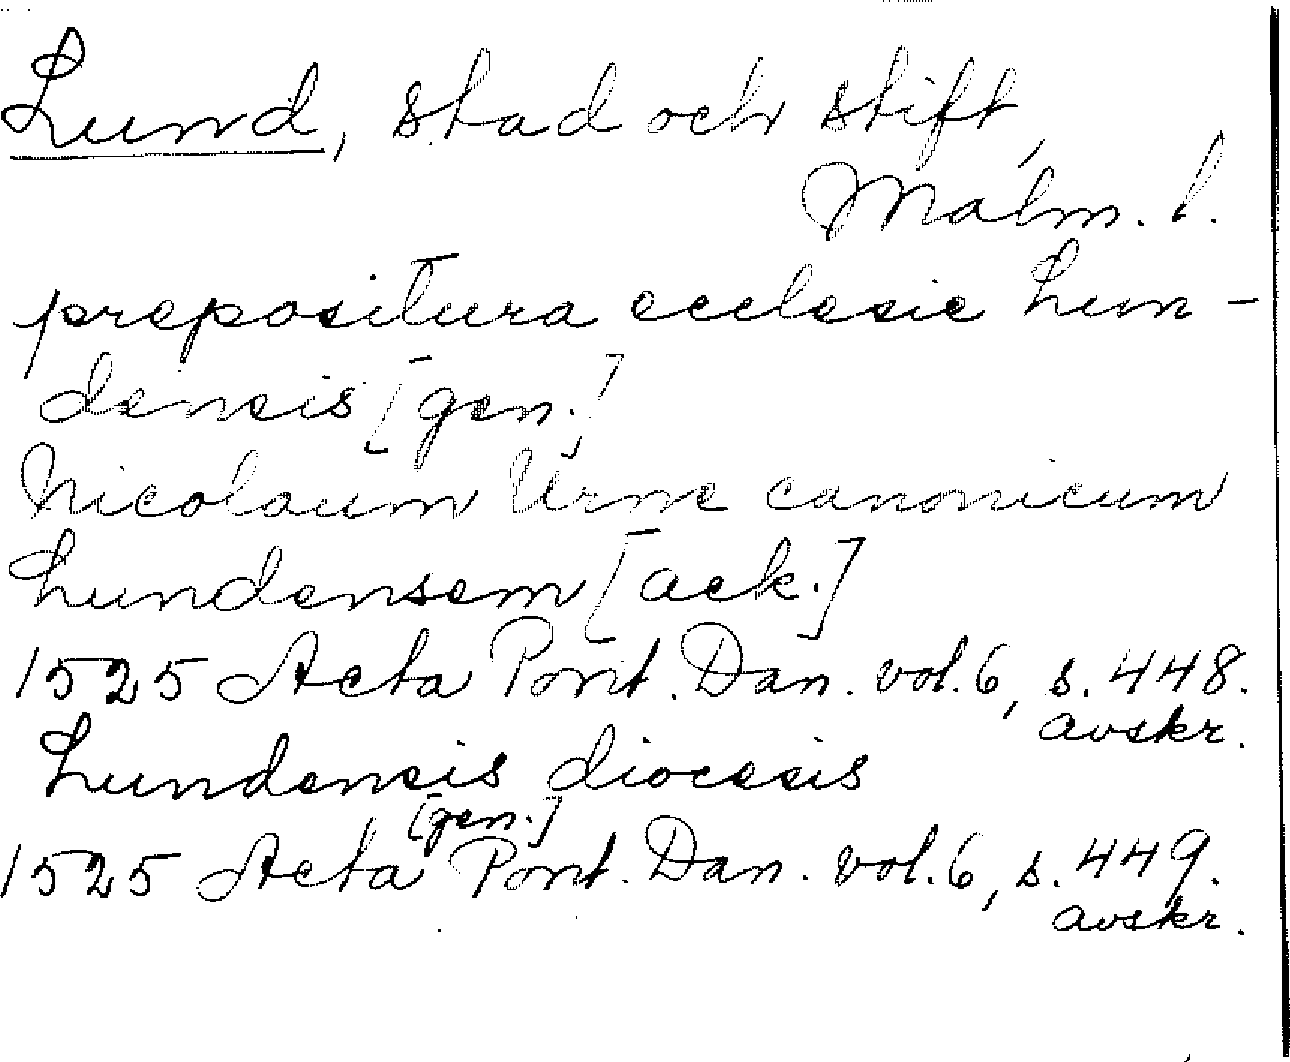 Lund, stad och stift,
Malm. l.
prepositura ecclesie Lun-
densis [gen.]
Nicolaum Urne canonicum
Lundensem [ack.]
1525 Acta Pont. Dan. vol. 6, s. 448.
avskr.
Lundensis diocesis
[gen.]
1525 Acta Pont. Dan. vol. 6, s. 449.
avskr.